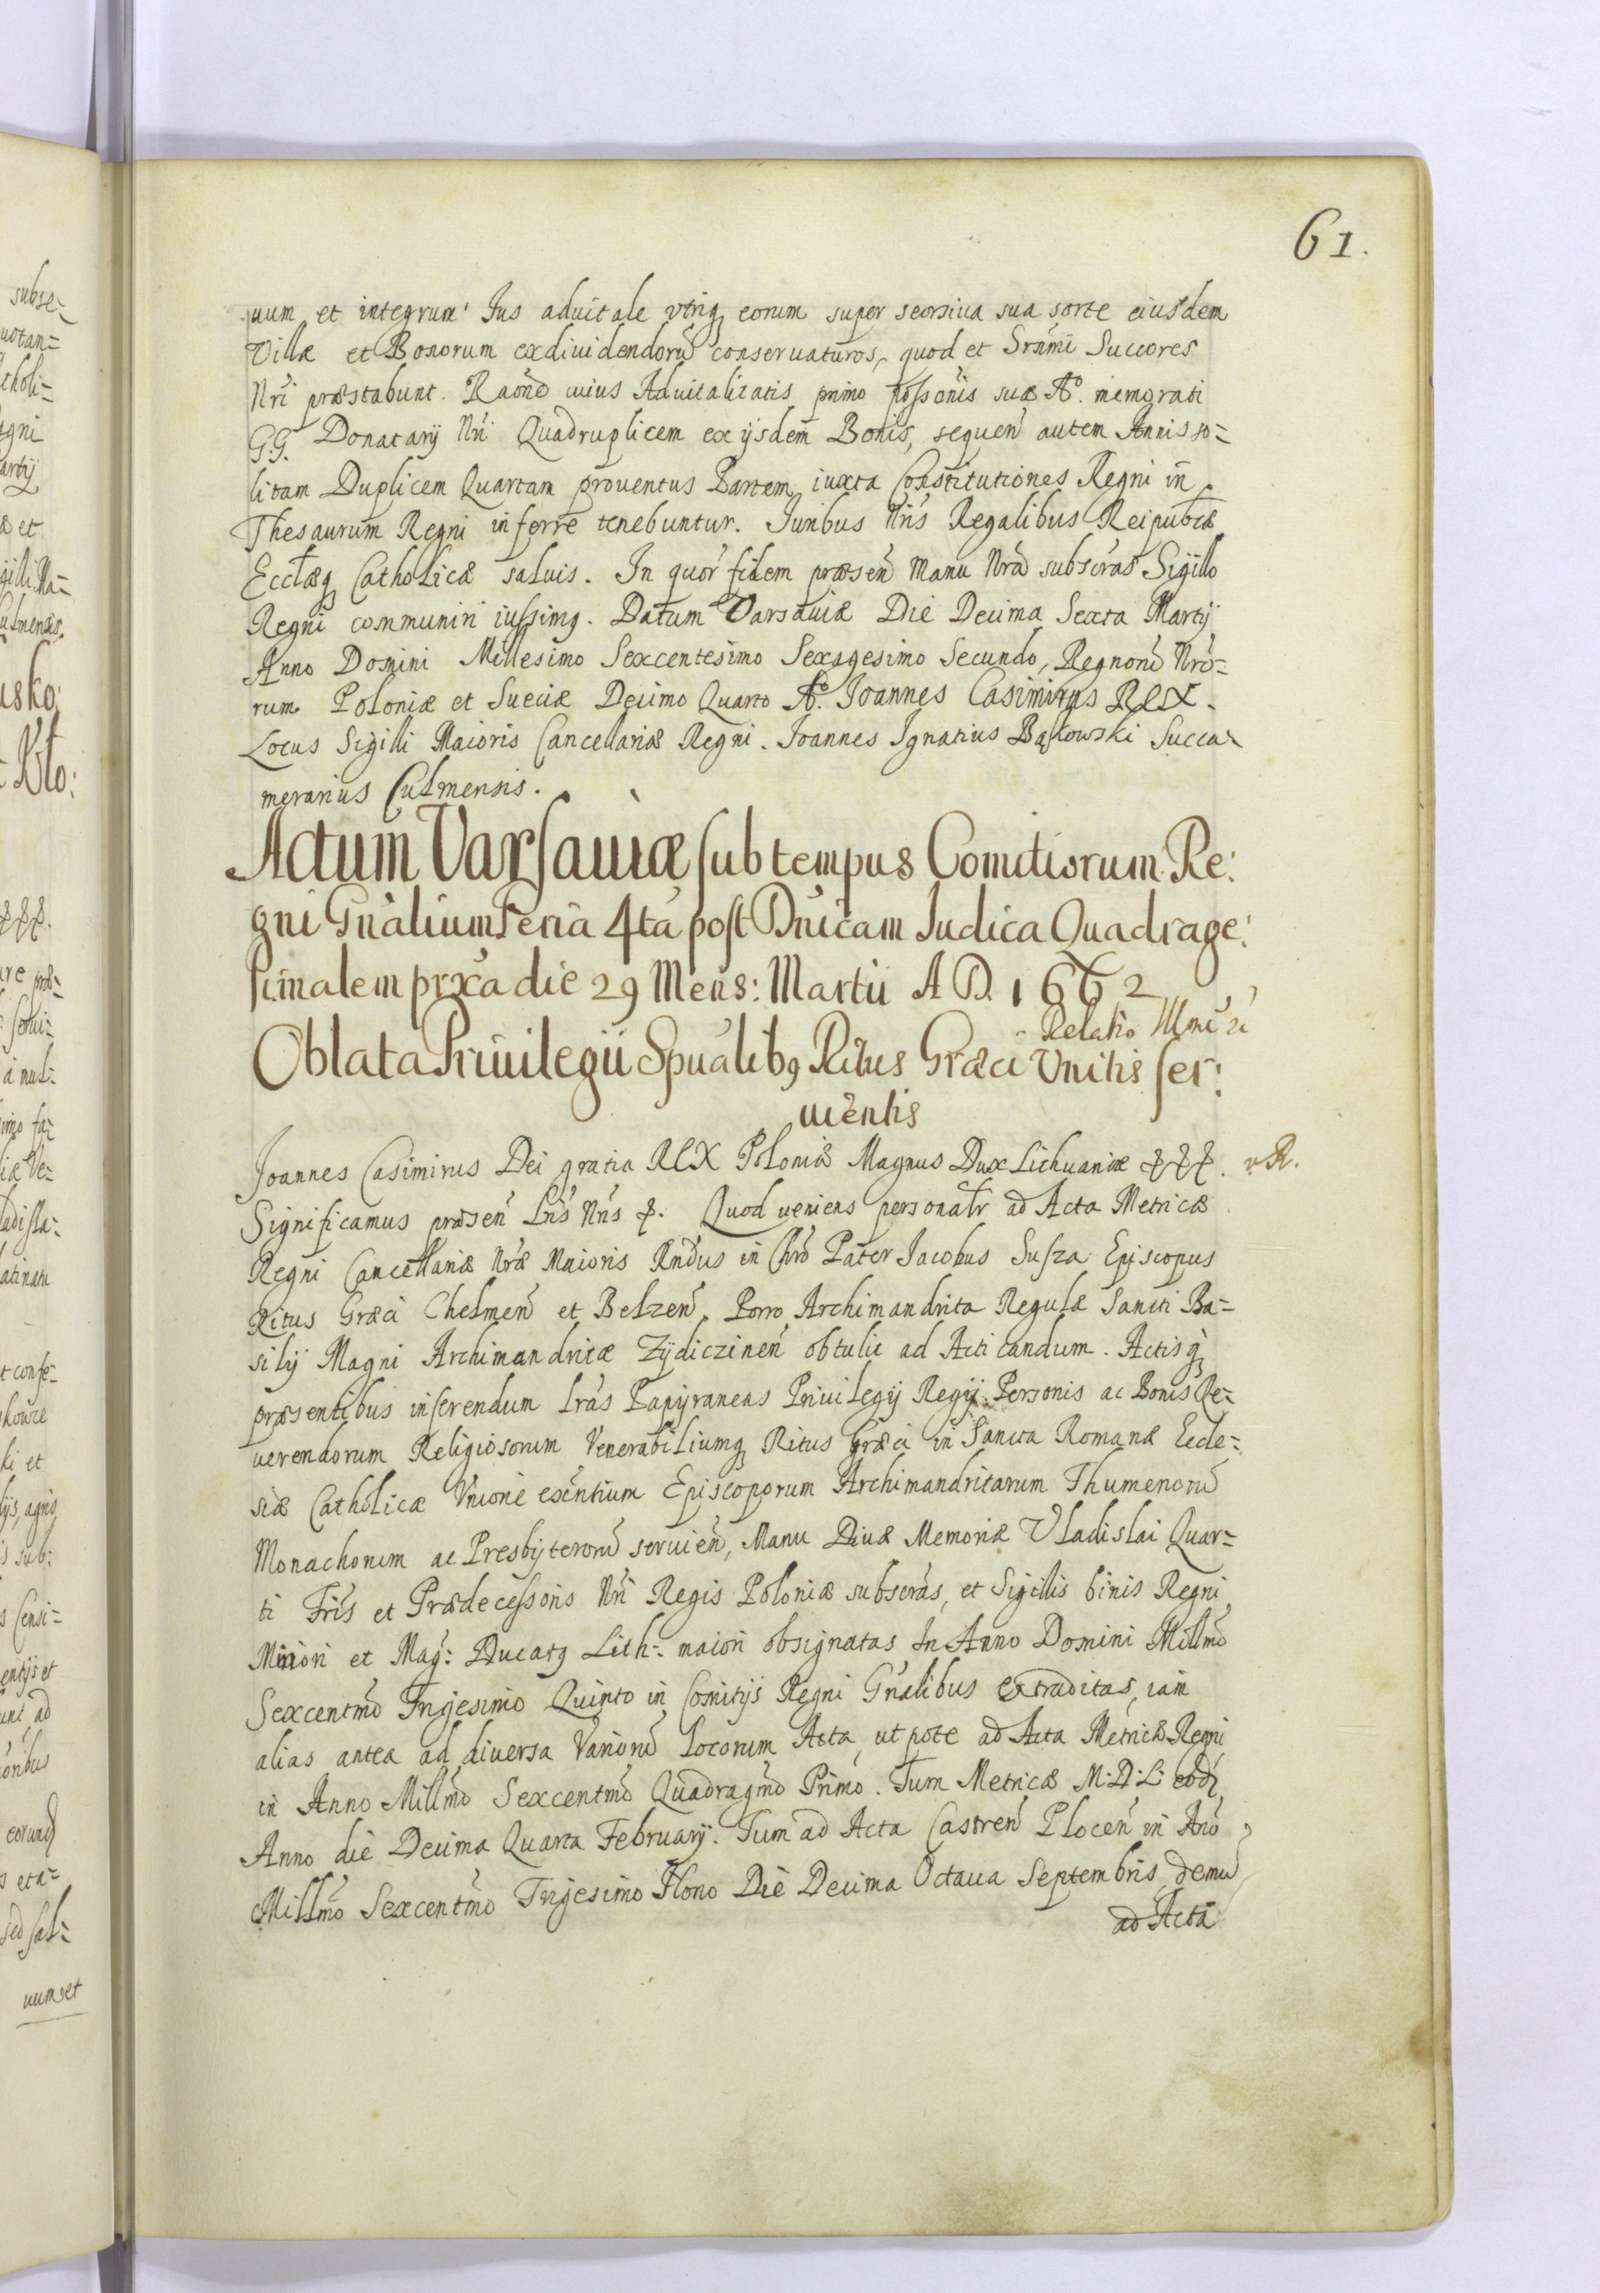 61.
uum et integrum Ius aduitale vtriq3 eorum super seorsiua sua sorte eiusdem
Villæ et Bonorum exdiuidendorū conseruaturos, quod et Srñmi Succores
Nri præstabunt. Raõne cuius Aduitalitatis primo possonis suæ Aº. memorati
G.G. Donatarij Nri Quadruplicem ex ijsdem Bonis, sequeñ autem Annis so=
litam Duplicem Quartam prouentus Partem, iuxta Constitutiones Regni in
Thesaurum Regni inferre tenebuntur. Iuribus Nris Regalibus Reipubcæ
Ecclæq3 Catholicæ saluis. In quor fidem præseñ Manu Nra subscras Sigillo
Regni communiri iussimq. Datum Varsauiæ Die Decima Sexta Martij
Anno Domini Millesimo Sexcentesimo Sexagesimo Secundo, Regnorū Nro=
rum Poloniæ et Sueciæ Decimo Quarto Aº. Joannes Casimirus REX.
Locus Sigilli Maioris Cancellariæ Regni. Joannes Ignatius Bąkowski Succa=
merarius Culmensis.
Actum Varsauiæ sub tempus Comitiorum Re:
gni Gnalium Feria 4ta post Dnicam Iudica Quadrage:
simalem prxa die 29 Mens: Martii A D. 1662
Relatio Illmi
Oblata Priuilegii Spualibq Ritus Græci Vnitis ser:
uientis
Joannes Casimirus Dei gratia REX Poloniæ Magnus Dux Lithuaniæ &&&.
Significamus præseñ Lris Nris &. Quod veniens personalr ad Acta Metricæ
Regni Cancellariæ Nræ Maioris Rndus in Chro Pater Iacobus Susza Episcopus
Ritus Græci Chelmeñ et Belzeñ, Porro Archimandrita Regulæ Sancti Ba=
silij Magni Archimandritæ Zydiczineñ obtulit ad Acticandum. Actisq3
præsentibus inserendum lras Papyraneas Priuilegij Regij Personis ac Bonis Re=
uerendorum Religiosorum Venerabiliumq3 Ritus Græci in Sancta Romanæ Eccle=
siæ Catholicæ Vnione exēntium Episcoporum Archimandritarum Ihumenorū
Monachorum ac Presbyterorū seruieñ, Manu Diuæ Memoriæ Vladislai Quar=
ti Fris et Prædecessoris Nri Regis Poloniæ subscras, et Sigillis binis Regni
Minori et Mag: Ducatq Lith: maiori obsignatas In Anno Domini Millmo
Sexcentmo Trigesimo Quinto in Comitijs Regni Gnalibus extraditas, iam
alias antea ad diuersa Variorū Locorum Acta, ut pote ad Acta Metricæ Regni
in Anno Millmo Sexcentmo Quadragmo Primo. Tum Metricæ M.D.L. eod
Anno die Decima Quarta February. Tum ad Acta Castreñ Ploceñ in Año
Millmo Sexcentmo Trigesimo Nono Die Decima Octaua Septembris, demū
ad Acta